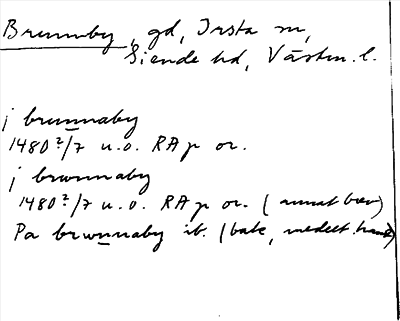 Brunnby, gd, Irsta sn,
Siende hd, Västm. l.
j brunnaby
1480 2/7 u.o. RA p or.
j brwnnaby
1480 2/7 u.o. RA p or. (annat brev)
Pa brwnnaby ib. (baks, medelt. hand)